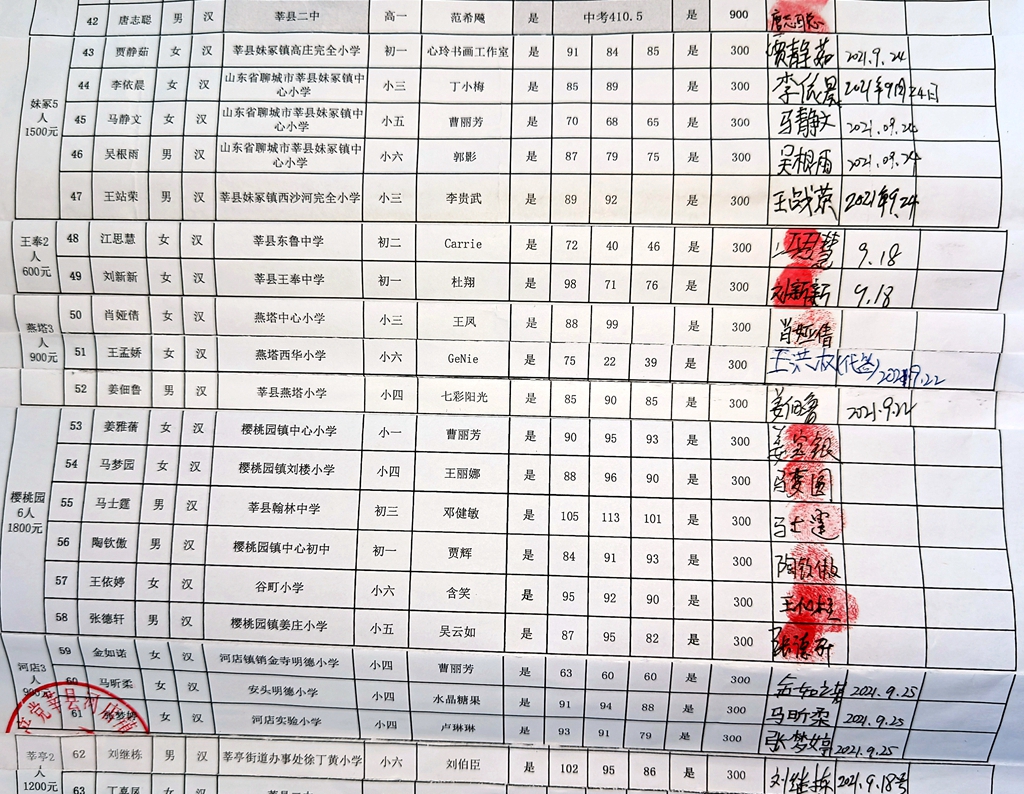 42 唐志聪 男 汉 莘县二中 高一 范希飚 是 中考410.5 是 900 唐志聪
妹冢5人1500元
43 贾静茹 女 汉 莘县妹冢镇高庄完全小学 初一 心玲书画工作室 是 91 84 85 是 300 贾静茹 2021.9.24
44 李依晨 女 汉 山东省聊城市莘县妹冢镇中心小学 小三 丁小梅 是 85 89 是 300 李依晨 2021年9月24日
45 马静文 女 汉 山东省聊城市莘县妹冢镇中心小学 小五 曹丽芳 是 70 68 65 是 300 马静文 2021.09.24
46 吴根雨 男 汉 山东省聊城市莘县妹冢镇中心小学 小六 郭影 是 87 79 75 是 300 吴根雨 2021.09.24
47 王站荣 男 汉 莘县妹冢镇西沙河完全小学 小三 李贵武 是 89 92 是 300 王战荣 2021年9.24
王奉2人600元
48 江思慧 女 汉 莘县东鲁中学 初二 Carrie 是 72 40 46 是 300 江思慧 9.18
49 刘新新 女 汉 莘县王奉中学 初一 杜翔 是 98 71 76 是 300 刘新新 9.18
燕塔3人900元
50 肖娅倩 女 汉 燕塔中心小学 小三 王凤 是 88 99 是 300 肖娅倩
51 王孟娇 女 汉 燕塔西华小学 小六 GeNie 是 75 22 39 是 300 (代签) 2021.9.22
52 姜佃鲁 男 汉 莘县燕塔小学 小四 七彩阳光 是 85 90 85 是 300 姜佃鲁 2021.9.22
樱桃园6人1800元
53 姜雅蒨 女 汉 樱桃园镇中心小学 小一 曹丽芳 是 90 95 93 是 300
54 马梦园 女 汉 樱桃园镇刘楼小学 小四 王丽娜 是 88 96 90 是 300 马梦园
55 马士霆 男 汉 莘县翰林中学 初三 邓健敏 是 105 113 101 是 300 马士霆
56 陶钦傲 男 汉 樱桃园镇中心初中 初一 贾辉 是 84 91 93 是 300 陶钦傲
57 王依婷 女 汉 谷町小学 小六 含笑 是 95 92 90 是 300
58 张德轩 男 汉 樱桃园镇姜庄小学 小五 吴云如 是 87 95 82 是 300 张德轩
河店3人900元
59 金如诺 女 汉 河店镇销金寺明德小学 小四 曹丽芳 是 63 60 60 是 300 2021.9.25
60 马昕柔 女 汉 安头明德小学 小四 水晶糖果 是 91 94 88 是 300 马昕柔 2021.9.25
61 张梦婷 女 汉 河店实验小学 小四 卢琳琳 是 93 91 79 是 300 张梦婷 2021.9.25
莘亭2人1200元
62 刘继栋 男 汉 莘亭街道办事处徐丁黄小学 小六 刘伯臣 是 102 95 86 是 300 刘继栋 2021.9.18号
63